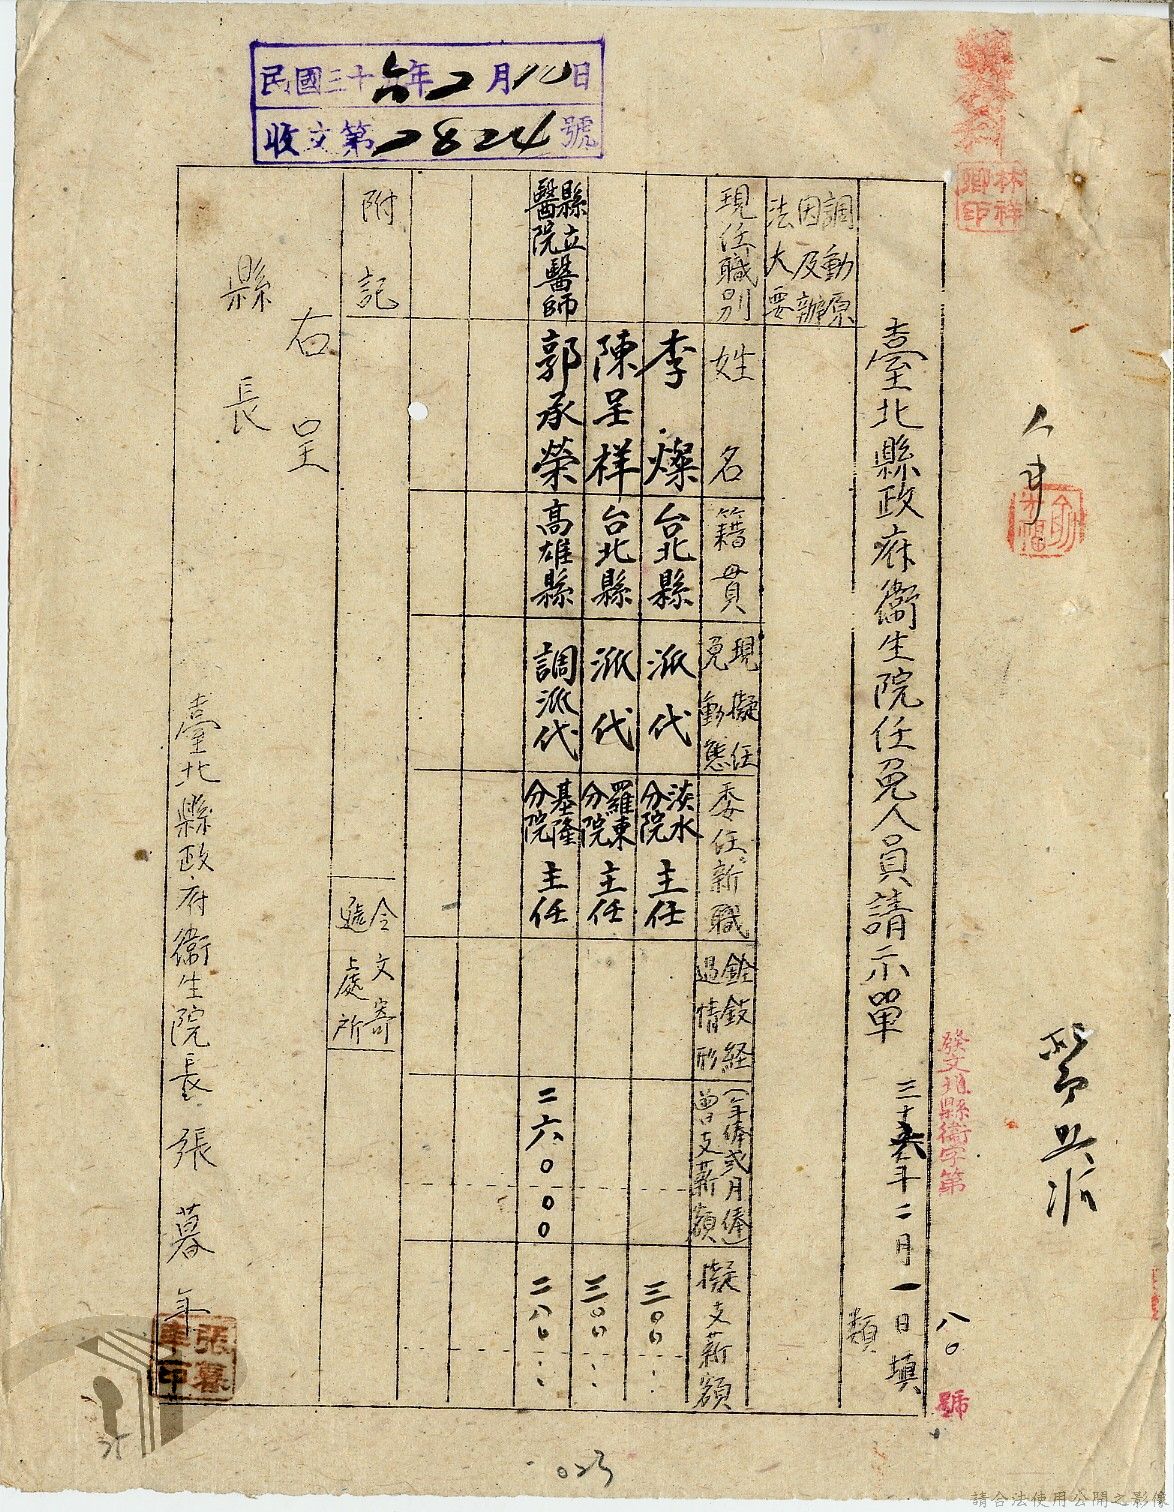 民國三十六年2月10日
收文第2824號
林祥卿印
人事
發文北縣衛字第八〇號
臺北縣政府衛生院任免人員請示單
三十六年二月一日填
類
調動原因及辦法大要
現任職別
姓名
籍貫
現擬任免動態
委任新職
銓敍経過情形
(年俸或月俸)曾支薪額
擬支薪額
李燦
台北縣
派代
淡水分院主任
三〇〇
陳呈祥
台北縣
派代
羅東分院主任
三〇〇
縣立醫院醫師
郭承榮
高雄縣
調派代
基隆分院主任
二六〇〇〇
二八〇
附記
令文寄遞處所
右呈
縣長
臺北縣政府衛生院長張暮年
張暮年印
023
請合法使用公開之影像